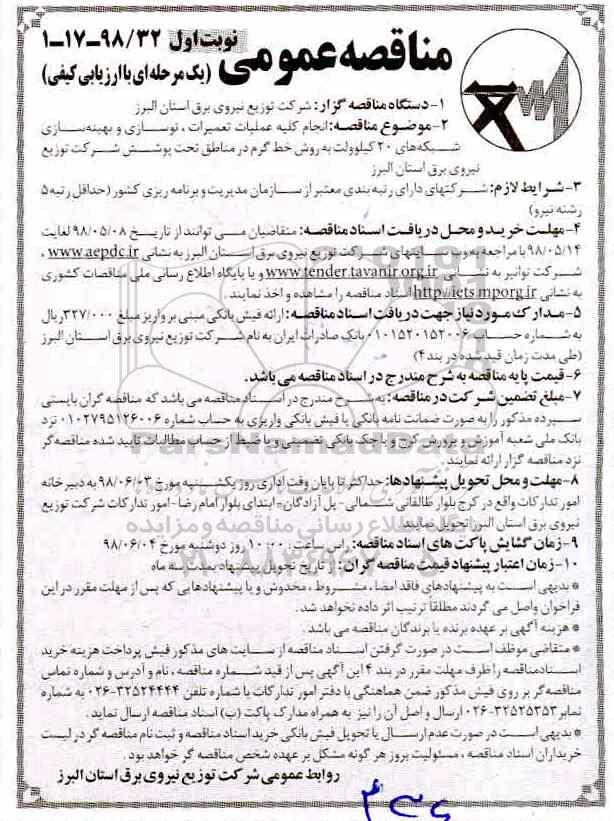 نوبت اول ۹۸/۳۲-۱۷-۱
مناقصه عمومی (یک مرحله‌ای با ارزیابی کیفی)
۱- دستگاه مناقصه گزار: شرکت توزیع نیروی برق استان البرز
۲- موضوع مناقصه: انجام کلیه عملیات تعمیرات ، نوسازی و بهینه‌سازی
شبکه‌های ۲۰ کیلوولت به روش خط گرم در مناطق تحت پوشش شرکت توزیع
نیروی برق استان البرز
۳- شرایط لازم: شرکتهای دارای رتبه بندی معتبر از سازمان مدیریت و برنامه ریزی کشور (حداقل رتبه ۵
رشته نیرو)
۴- مهلت خرید و محل دریافت اسناد مناقصه: متقاضیان می توانند از تاریخ ۹۸/۰۵/۰۸ لغایت
۹۸/۰۵/۱۴ با مراجعه به وب سایتهای شرکت توزیع نیروی برق استان البرز به نشانی www.aepdc.ir ،
شرکت توانیر به نشانی www.tender.tavanir.org.ir و یا پایگاه اطلاع رسانی ملی مناقصات کشوری
به نشانی http://iets.mporg.ir اسناد مناقصه را مشاهده و اخذ نمایند .
۵- مدارک مورد نیاز جهت دریافت اسناد مناقصه: ارائه فیش بانکی مبنی بر واریز مبلغ ۳۲۷/۰۰۰ ریال
به شماره حساب ۰۱۰۱۵۲۰۱۵۲۰۰۶ بانک صادرات ایران به نام شرکت توزیع نیروی برق استان البرز
(طی مدت زمان قید شده در بند ۴)
۶- قیمت پایه مناقصه به شرح مندرج در اسناد مناقصه می باشد.
۷- مبلغ تضمین شرکت در مناقصه: به شرح مندرج در اسناد مناقصه می باشد که مناقصه گران بایستی
سپرده مذکور را به صورت ضمانت نامه بانکی یا فیش بانکی واریزی به حساب شماره ۰۱۰۲۷۹۵۱۲۶۰۰۶ نزد
بانک ملی شعبه آموزش و پرورش کرج و یا چک بانکی تضمینی و یا ضبط از حساب مطالبات تایید شده مناقصه‌گر
نزد مناقصه گزار ارائه نمایند.
۸- مهلت و محل تحویل پیشنهادها: حداکثر تا پایان وقت اداری روز یکشنبه مورخ ۹۸/۰۶/۰۳ به دبیرخانه
امور تدارکات واقع در کرج بلوار طالقانی شمالی - پل آزادگان - ابتدای بلوار امام رضا - امور تدارکات شرکت توزیع
نیروی برق استان البرز تحویل نمایند.
۹- زمان گشایش پاکت های اسناد مناقصه: راس ساعت ۱۰:۰۰ روز دوشنبه مورخ ۹۸/۰۶/۰۴
۱۰- زمان اعتبار پیشنهاد قیمت مناقصه گران : از تاریخ تحویل پیشنهاد بمدت سه ماه
* بدیهی است به پیشنهادهای فاقد امضا ، مشروط ، مخدوش و یا پیشنهادهایی که پس از مهلت مقرر در این
فراخوان واصل می گردند مطلقاً ترتیب اثر داده نخواهد شد.
* هزینه آگهی بر عهده برنده یا برندگان مناقصه می باشد .
* متقاضی موظف است در صورت گرفتن اسناد مناقصه از سایت های مذکور فیش پرداخت هزینه خرید
اسناد مناقصه را ظرف مهلت مقرر در بند ۴ این آگهی پس از قید شماره مناقصه ، نام و آدرس و شماره تماس
مناقصه‌گر بر روی فیش مذکور ضمن هماهنگی با دفتر امور تدارکات با شماره تلفن ۳۲۵۲۴۴۴۴-۰۲۶ به شماره
نمابر ۳۲۵۲۵۳۵۳-۰۲۶ ارسال و اصل آن را نیز به همراه مدارک پاکت (ب) اسناد مناقصه ارسال نماید.
* بدیهی است در صورت عدم ارسال یا تحویل فیش بانکی خرید اسناد مناقصه و ثبت نام مناقصه گر در لیست
خریداران اسناد مناقصه ، مسئولیت بروز هر گونه مشکل بر عهده شخص مناقصه گر خواهد بود .
روابط عمومی شرکت توزیع نیروی برق استان البرز